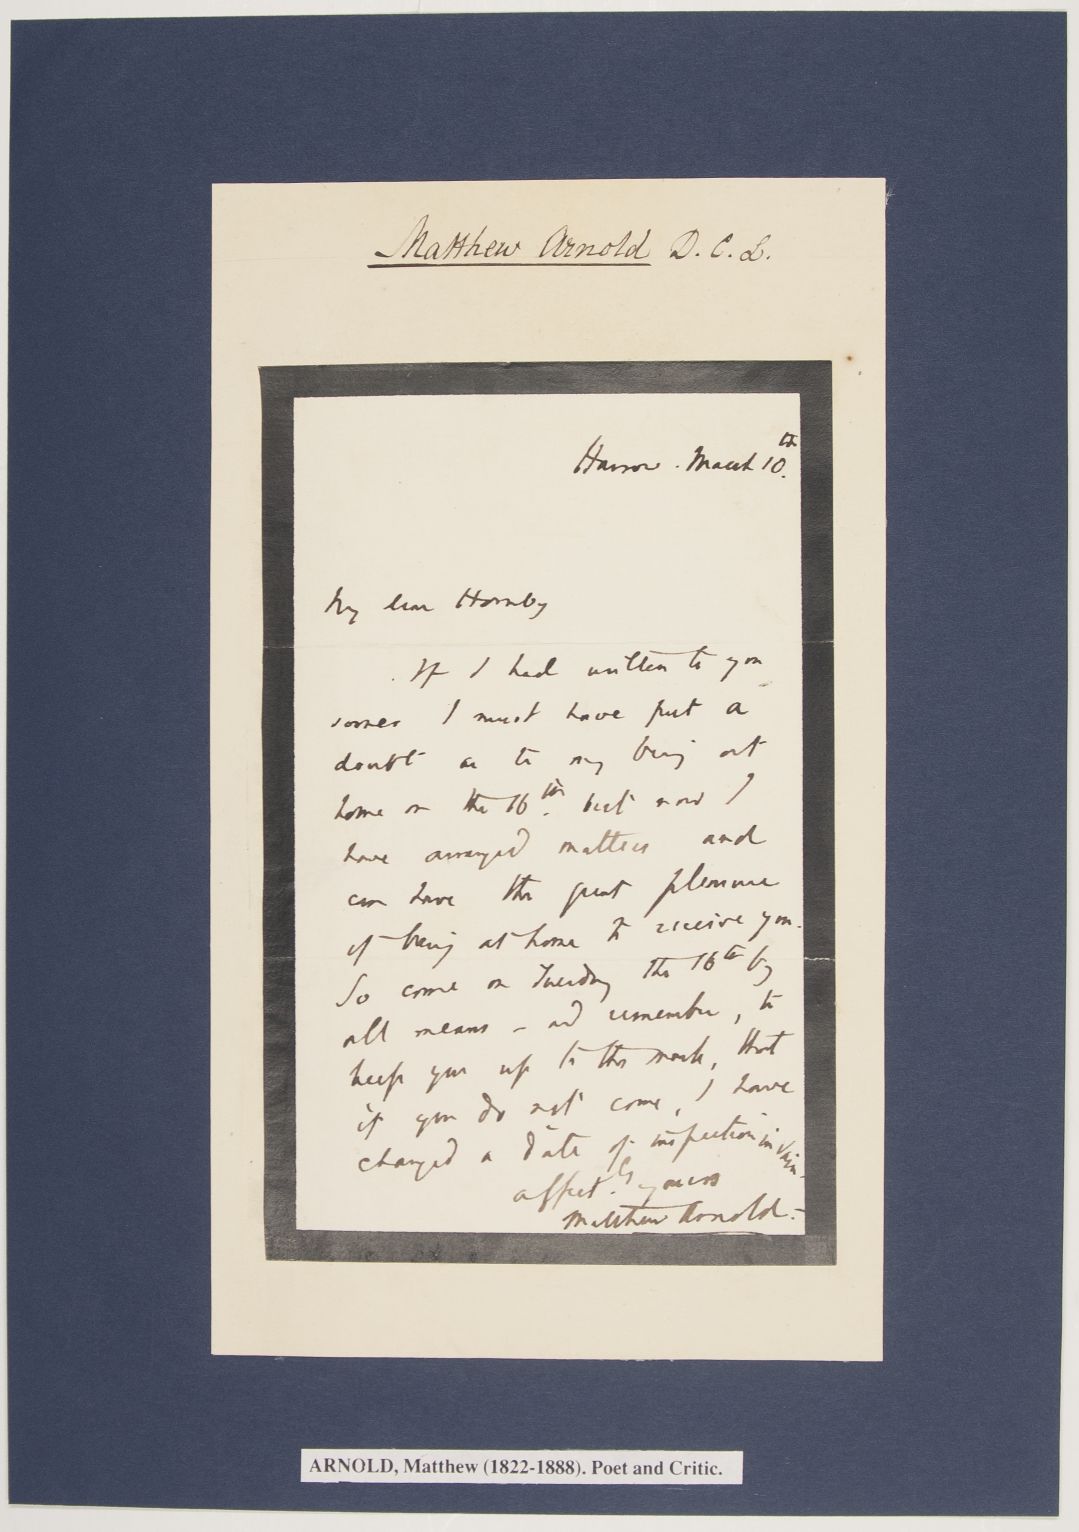 Matthew Arnold D. C. L.
Harrow. March 10th.
My dear Hornby
If I had written to you
sooner I must have put a
doubt as to my being at
home on the 16th. but now I
have arranged matters and
can have the great pleasure
of being at home to receive you.
So come on Tuesday the 16th by
all means - and remember, to
keep you up to the mark, that
if you do not come, I have
changed a date of inspection in vain.
affect.ly yours
Matthew Arnold.-
ARNOLD, Matthew (1822-1888). Poet and Critic.